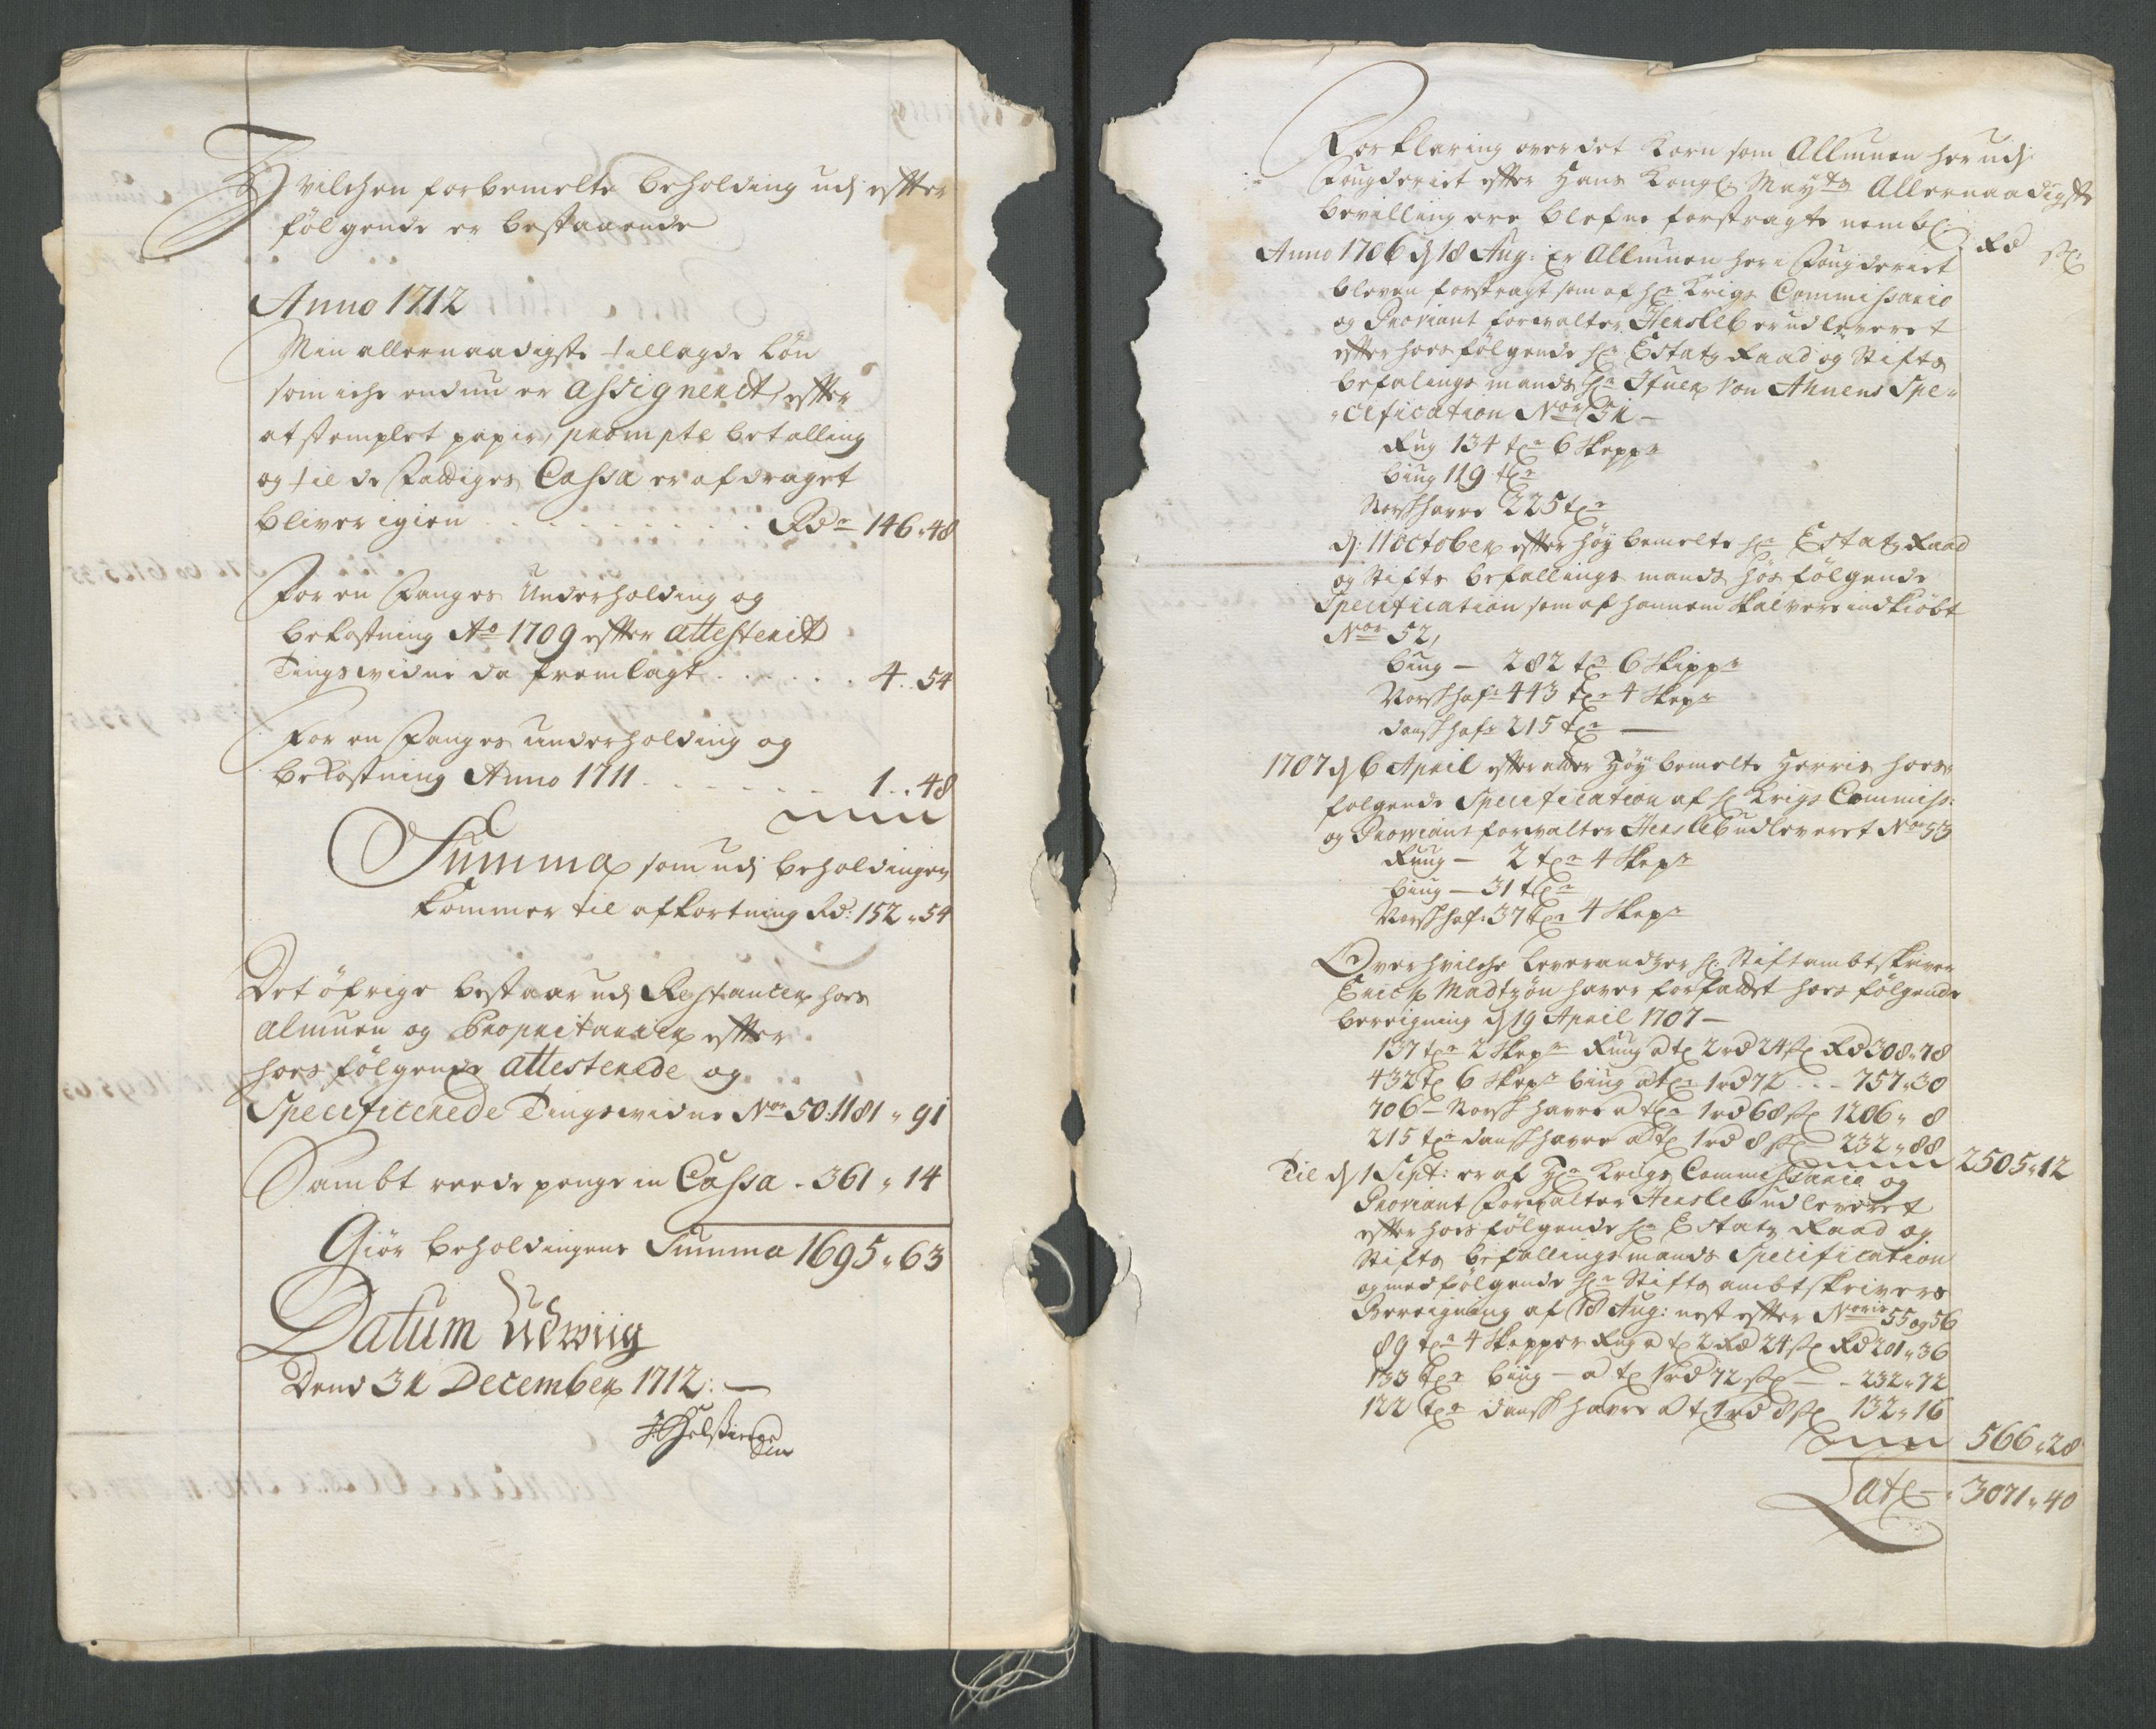 Hvilchen forbemelte beholding udj effter
følgende er bestaaende
Anno 1712
Min allernaadigste tillagde Løn
som iche endnu er assignerit, effter
at stemplet papir, prompte betalling
og til de Fattiges Cassa er afdraget
bliver igien . . . . . . . . . . Rdr 146„48
For en Fanges Underholding og
bekostning Ao 1709 effter attesterit
Tingsvidne da fremlagt . . . . . . 4..54
For en Fanges underholding og
bekostning Anno 1711 . . . . . . . 1..48
Summa som udj beholdingen
kommer til afkortning Rd: 152„54
Det øfrige bestaar udj Restantzer hoes
almuen og Proprietarier effter
hoesfølgende attesterede og
Specificerede Tingsvidne Nor 50: 1181„91
Sambt reede penge in Cassa . 361„14
Giør beholdingens Summa 1695„63
Datum Udwiig
Dend 31 December 1712: —
Forklaring over det Korn som Allmuen her udj
Fougderiet effter Hans Kongl Mayts Allernaadigste
bevilling ere blefne forstragte nembl
Rd ß
Anno 1706 dj 18 Aug: Er Allmuen her i Fougderiet
bleven forstragt som af Hr Krigs Commissario
og Proviant forvalter Hersleb er udleveret
effter hoesfølgende Hr Estatz Raad og Stifts
befalings mands Hr Ifuer Von Ahnens Spe„
„cification Nor 51 —
Rug 134 tr 6 Skeppr
biug 119 tr
Norsk havre 225 tr
dj: 11 October effter høybemelte Hr Estatz Raad
og Stifts befallings mands hos følgende
Specification som af hannem skal være indkiøbt
Nor 52,
biug — 282 tr 6 Skippr
Norsk hafr 443 tr 4 Skepr
dansk hafr 215 tr —
1707 dj 6 April effter atter Høybemelte Herris hoes„
følgende Specification af Hr Krigs Commiss:
og Proviant forvalter Hersleb udleveret Nor 53
Rug — 2 tr 4 Skepr
biug — 31 tr
Norsk haf: 37 tr 4 Skepr
Over hvilche Leverandzer Hr. Stiftambtskriver
Erich Madtzøn haver forfattet hoes følgende
bereigning dj 19 April 1707 —
137 tr 2 Skepr Rug a t 2 rd 24 ß Rd 308„78
432 t 6 Skepr biug a tr 1 rd 72 . . . 757„30
706 — Norsk havre a tr 1 rd 68 ß 1206„8
215 tr dansk havre a t 1 rd 8 ß 232„88
2505„12
Til dj 1 Sept: er af Hr Krigs Commissario og
Proviant Forvalter Hersleb udleveret
effter hoes følgende Hr Estatz Raad og
Stifts befallings mands Specification
og medfølgende Hr Stifts ambtskrivers
Bereigning af 18 Aug: nest effter 55 og 56
89 tr 4 Skepper Rug a t 2 Rd 24 ß Rd 201„36
133 tr biug — a t 1 rd 72 ß — . 232„72
122 tr dansk havre a t 1 rd 8 ß 132„16
566„28
Late — 3071„40